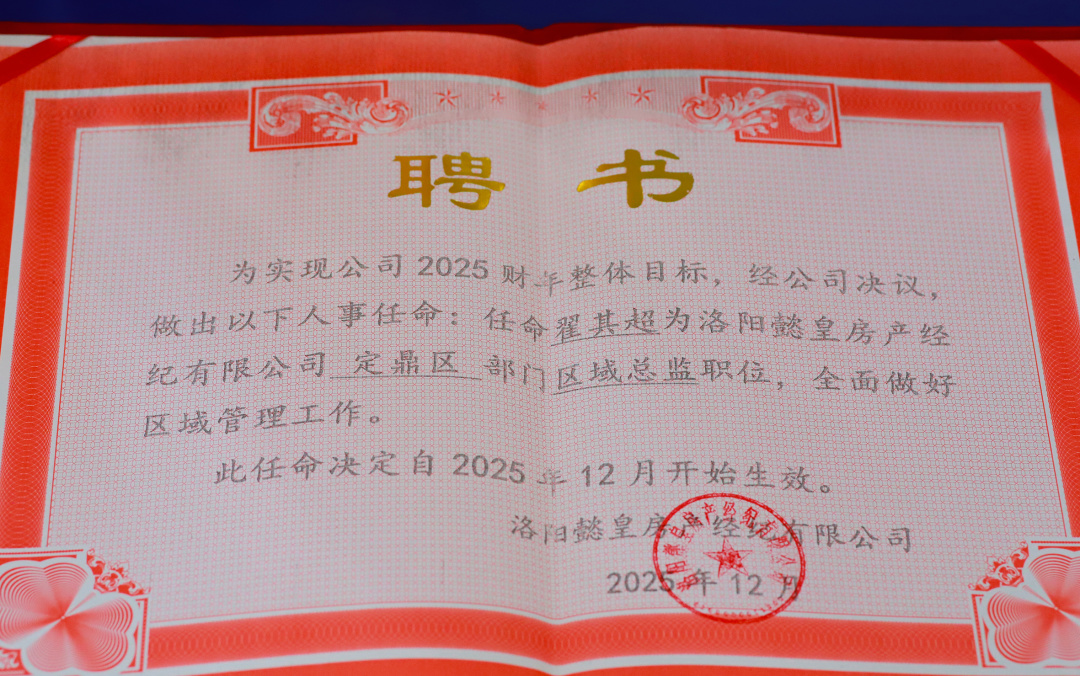 聘书
为实现公司2025财年整体目标，经公司决议，
做出以下人事任命：任命翟其超为洛阳懿皇房产经
纪有限公司 定鼎区 部门区域总监职位，全面做好
区域管理工作。
此任命决定自2025年12月开始生效。
洛阳懿皇房产经纪有限公司
2025年12月